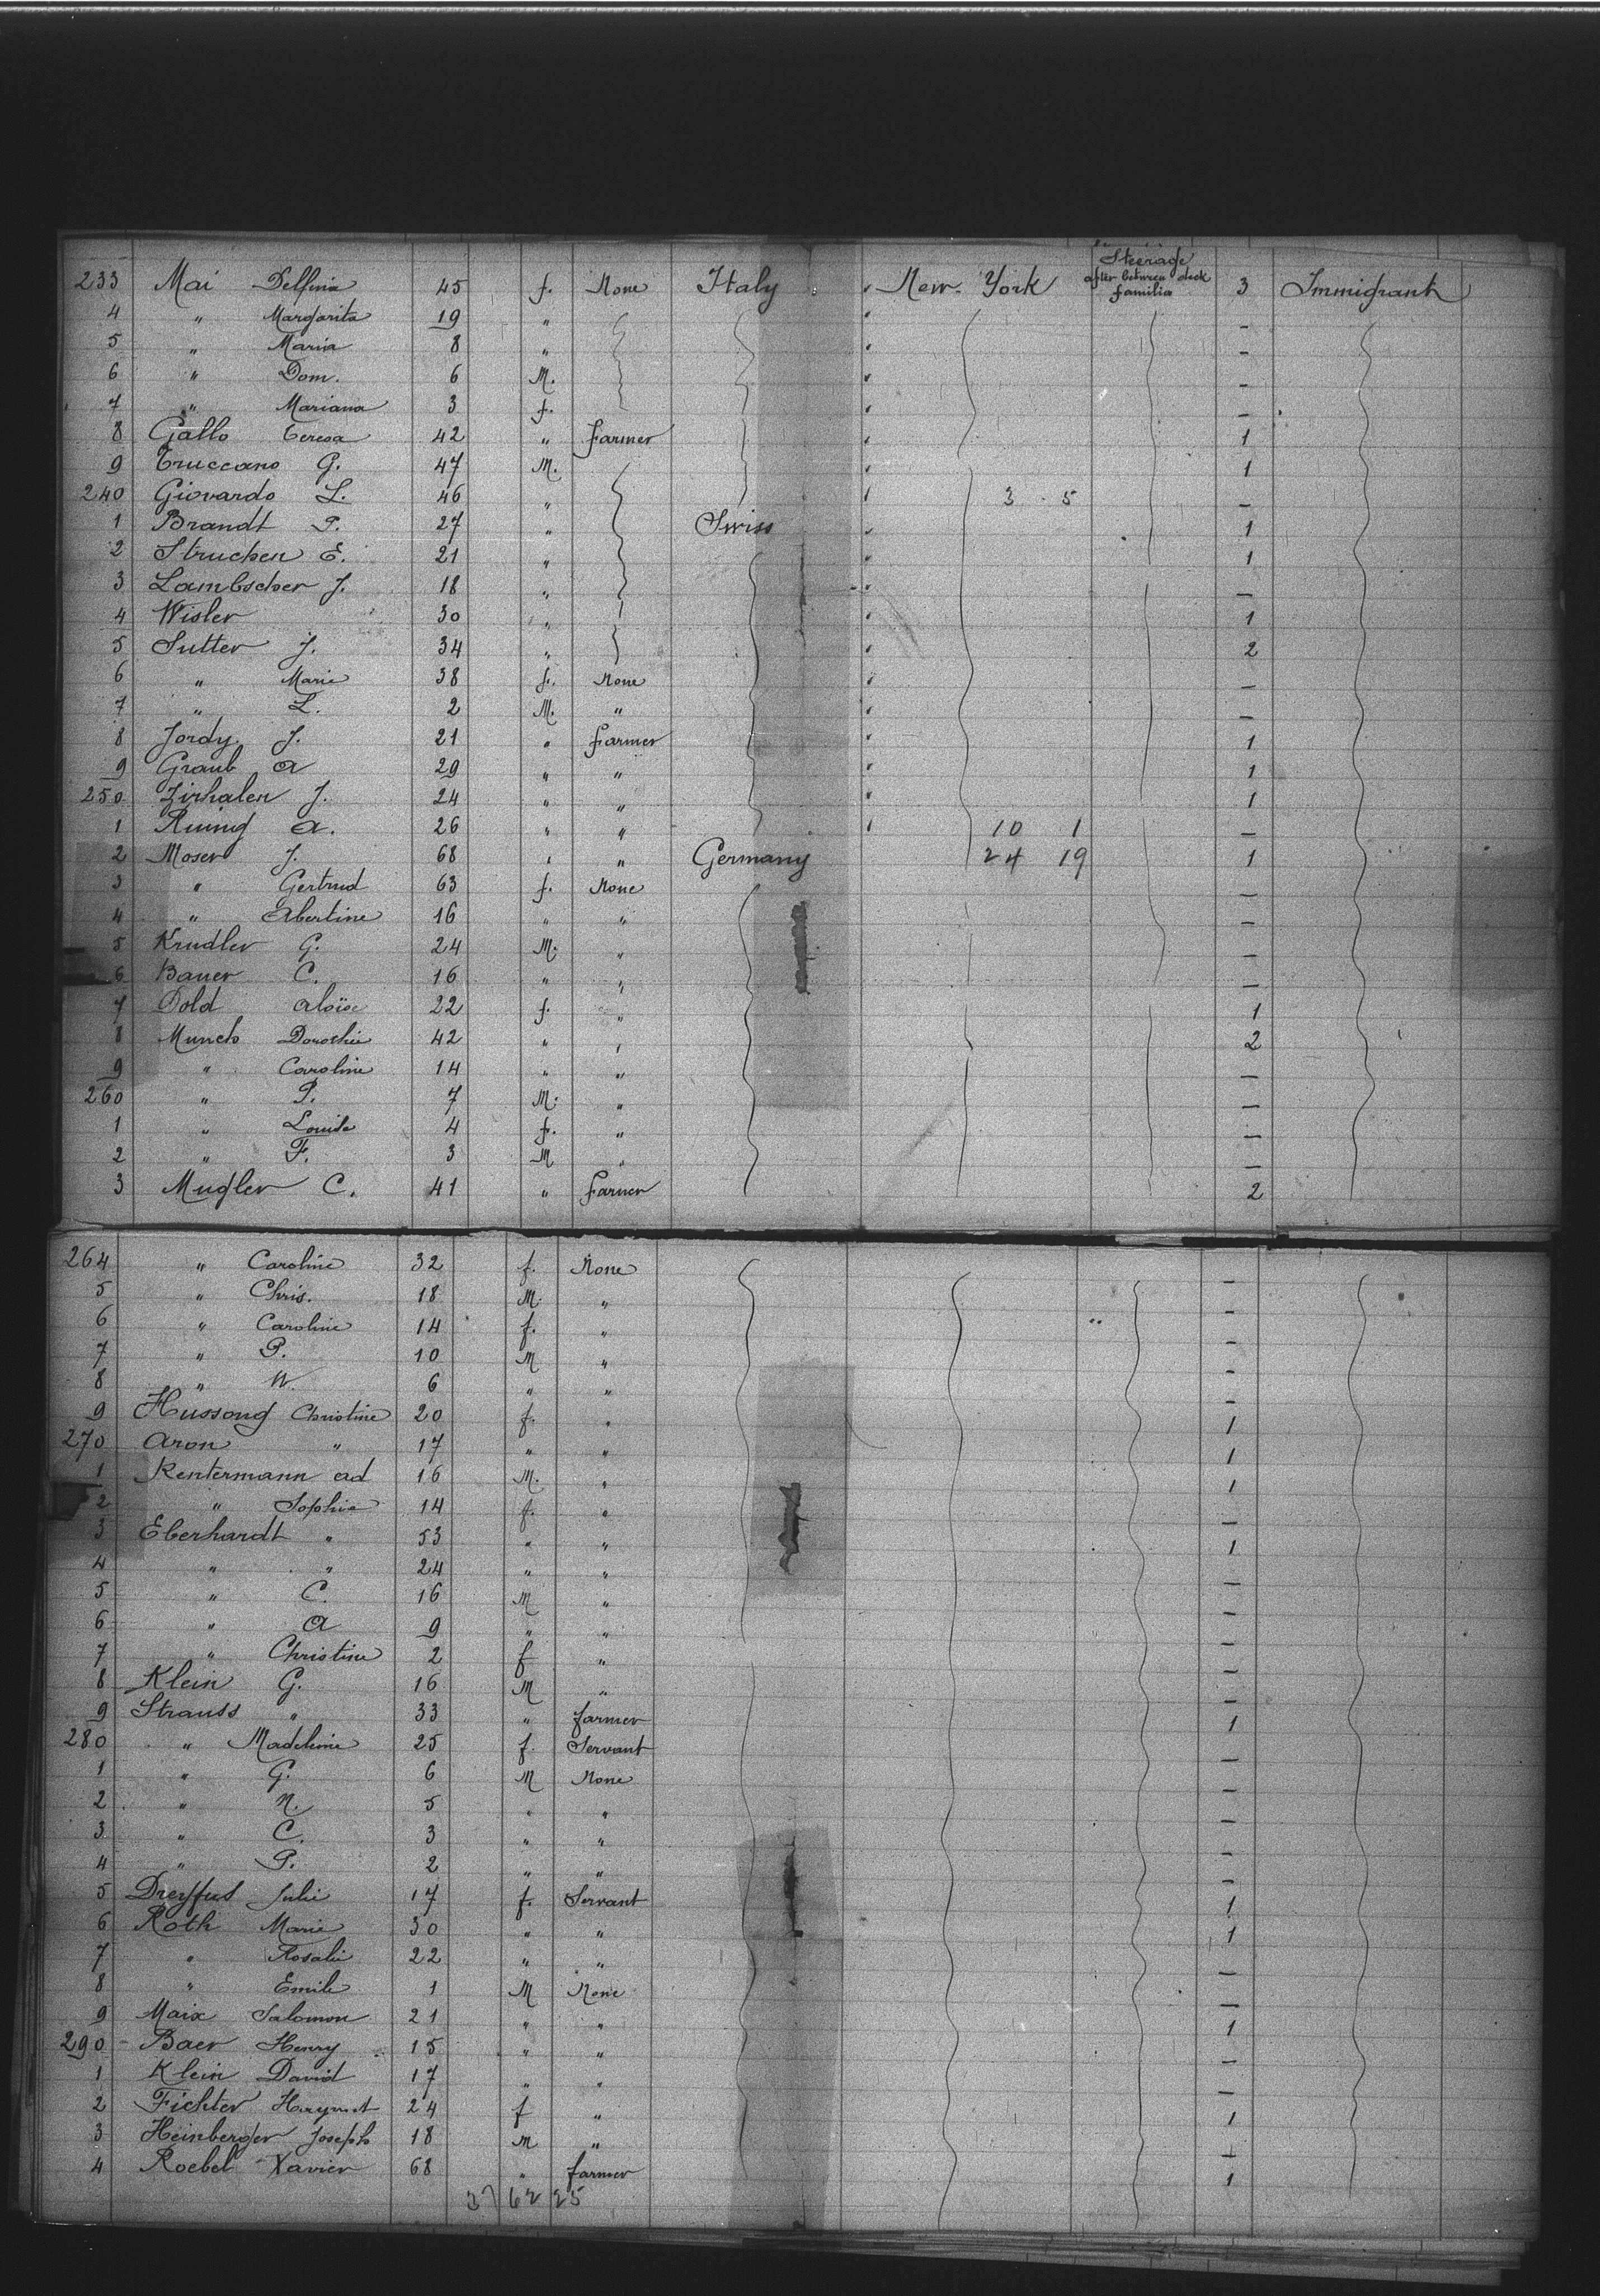 Steerage
233 Mai Delfina 45 f. None Italy " New-York after between deck familia 3 Immigrant
4 " Margarita 19 " " –
5 " Maria 8 " " –
6 " Dom. 6 M. " –
7 " Mariana 3 f. " –
8 Gallo Teresa 42 " farmer " 1
9 Truccano G. 47 M. " 1
240 Giovardo L. 46 " " 3 5 –
1 Brandt P. 27 " Swiss " 1
2 Struchen E. 21 " " 1
3 Lambscher J. 18 " " –
4 Wisler 30 " " 1
5 Sutter J. 34 " " 2
6 " Marie 38 f. None " –
7 " L. 2 M. " " –
8 Jordy J. 21 " farmer " 1
9 Graub A 29 " " " 1
250 Zirhalen J. 24 " " " 1
1 Ruing A. 26 " " " 10 1 –
2 Moser J. 68 " " Germany 24 19 1
3 " Gertrud 63 f. None –
4 " Albertine 16 " " –
5 Krudler G. 24 M. " –
6 Bauer C. 16 " " –
7 Dold Aloïse 22 f. " 1
8 Munch Dorothie 42 " " 2
9 " Caroline 14 " " –
260 " P. 7 M. " –
1 " Louise 4 f. " –
2 " F. 3 M " –
3 Mugler C. 41 " farmer 2
264 " Caroline 32 f. None –
5 " Chris. 18 M. " –
6 " Caroline 14 f. " –
7 " P. 10 M " –
8 " W. 6 " " –
9 Hussong Christine 20 f. " 1
270 Aron " 17 " " 1
1 Rentermann Ad 16 M. " 1
2 " Sophie 14 f. " –
3 Eberhardt " 53 " " 1
4 " " 24 " " –
5 " C. 16 M " –
6 " A 9 " " –
7 " Christine 2 f " –
8 Klein G. 16 M " –
9 Strauss " 33 " farmer 1
280 " Madeleine 25 f. Servant –
1 " G. 6 M None –
2 " N. 5 " " –
3 " C. 3 " " –
4 " P. 2 " " –
5 Dreyfus Julie 17 f. Servant 1
6 Roth Marie 30 " " 1
7 " Rosalie 22 " " –
8 " Emile 1 M None –
9 Maix Salomon 21 " " 1
290 Baer Henry 15 " " –
1 Klein David 17 " " –
2 Fichter 24 f " 1
3 Heinberger Joseph 18 M " –
4 Roebel Xavier 68 " farmer 1
37 62 25